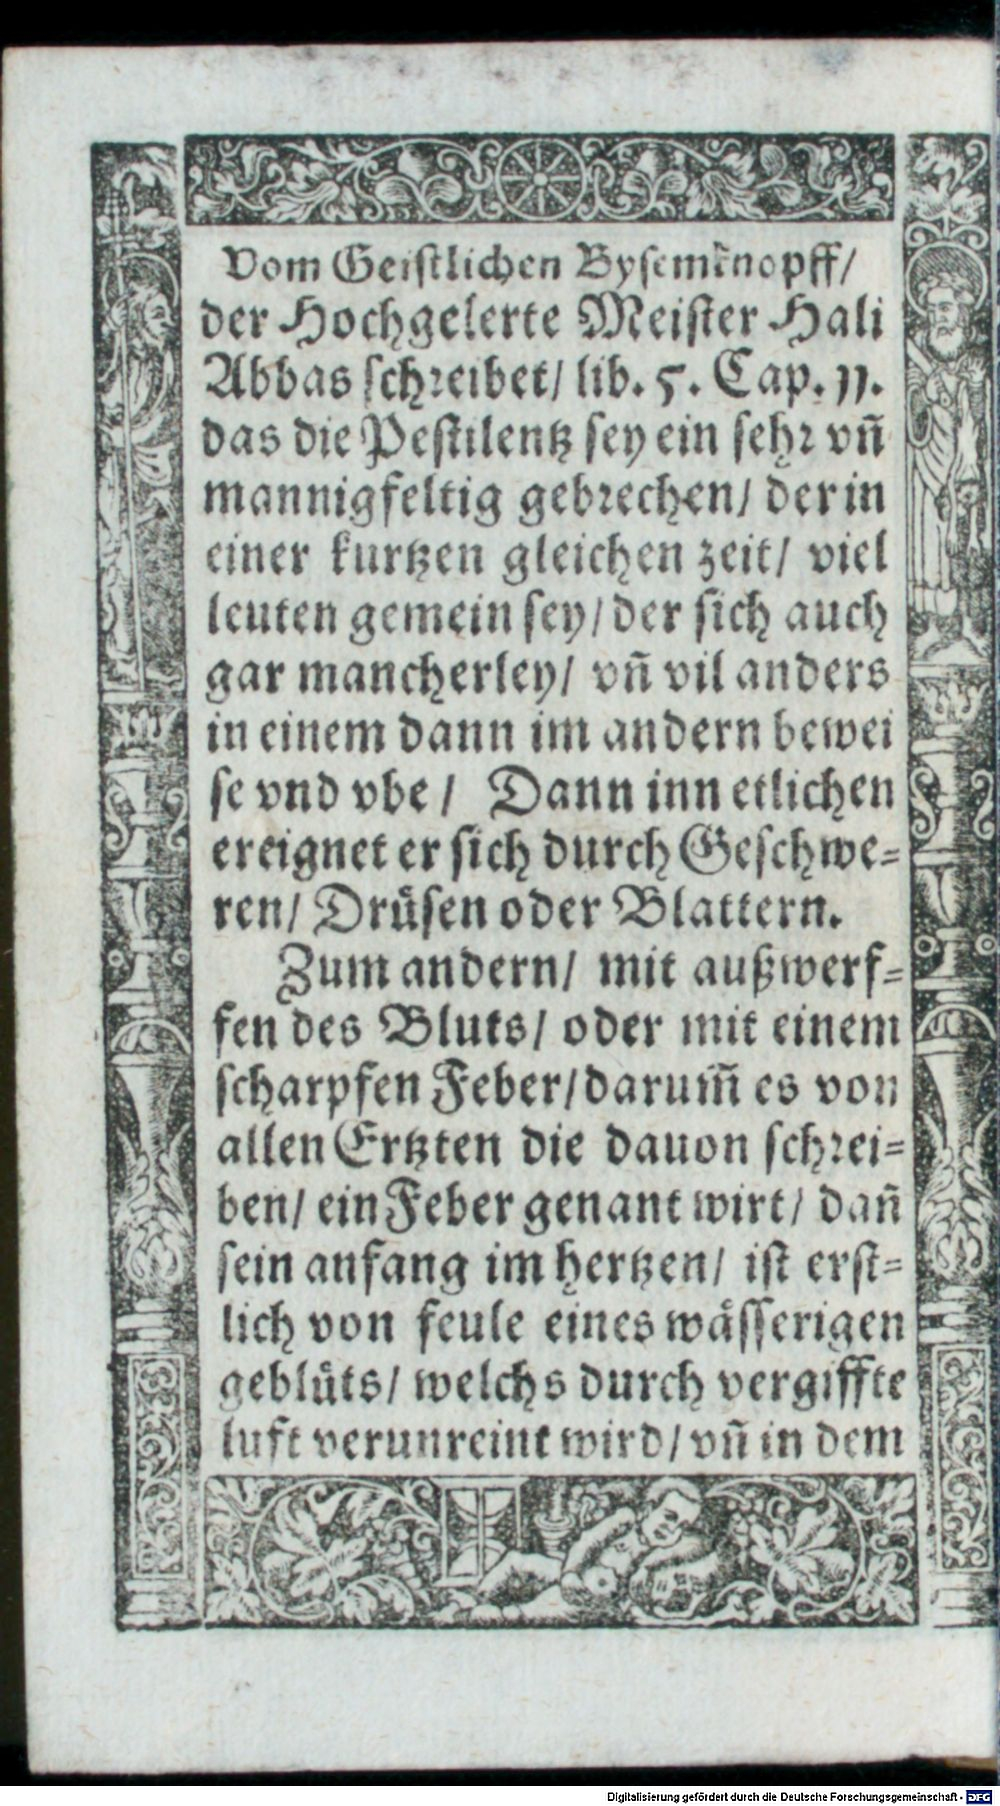 Vom Geistlichen Bysemknopff/
der Hochgelerte Meister Hali
Abbas schreibet/ lib. 5. Cap. 11.
das die Pestilentz sey ein sehr vñ
mannigfeltig gebrechen/ der in
einer kurtzen gleichen zeit/ viel
leuten gemein sey/ der sich auch
gar mancherley/ vñ vil anders
in einem dann im andern bewei
se vnd vbe/ Dann inn etlichen
ereignet er sich durch Geschwe-
ren/ Drüsen oder Blattern.
Zum andern/ mit außwerf-
fen des Bluts/ oder mit einem
scharpfen Feber/ darum̃ es von
allen Ertzten die dauon schrei-
ben/ ein Feber genant wirt/ dañ
sein anfang im hertzen/ ist erst-
lich von feule eines wässerigen
geblüts/ welchs durch vergiffte
luft verunreint wird/ vñ in dem
Digitalisierung gefördert durch die Deutsche Forschungsgemeinschaft - DFG